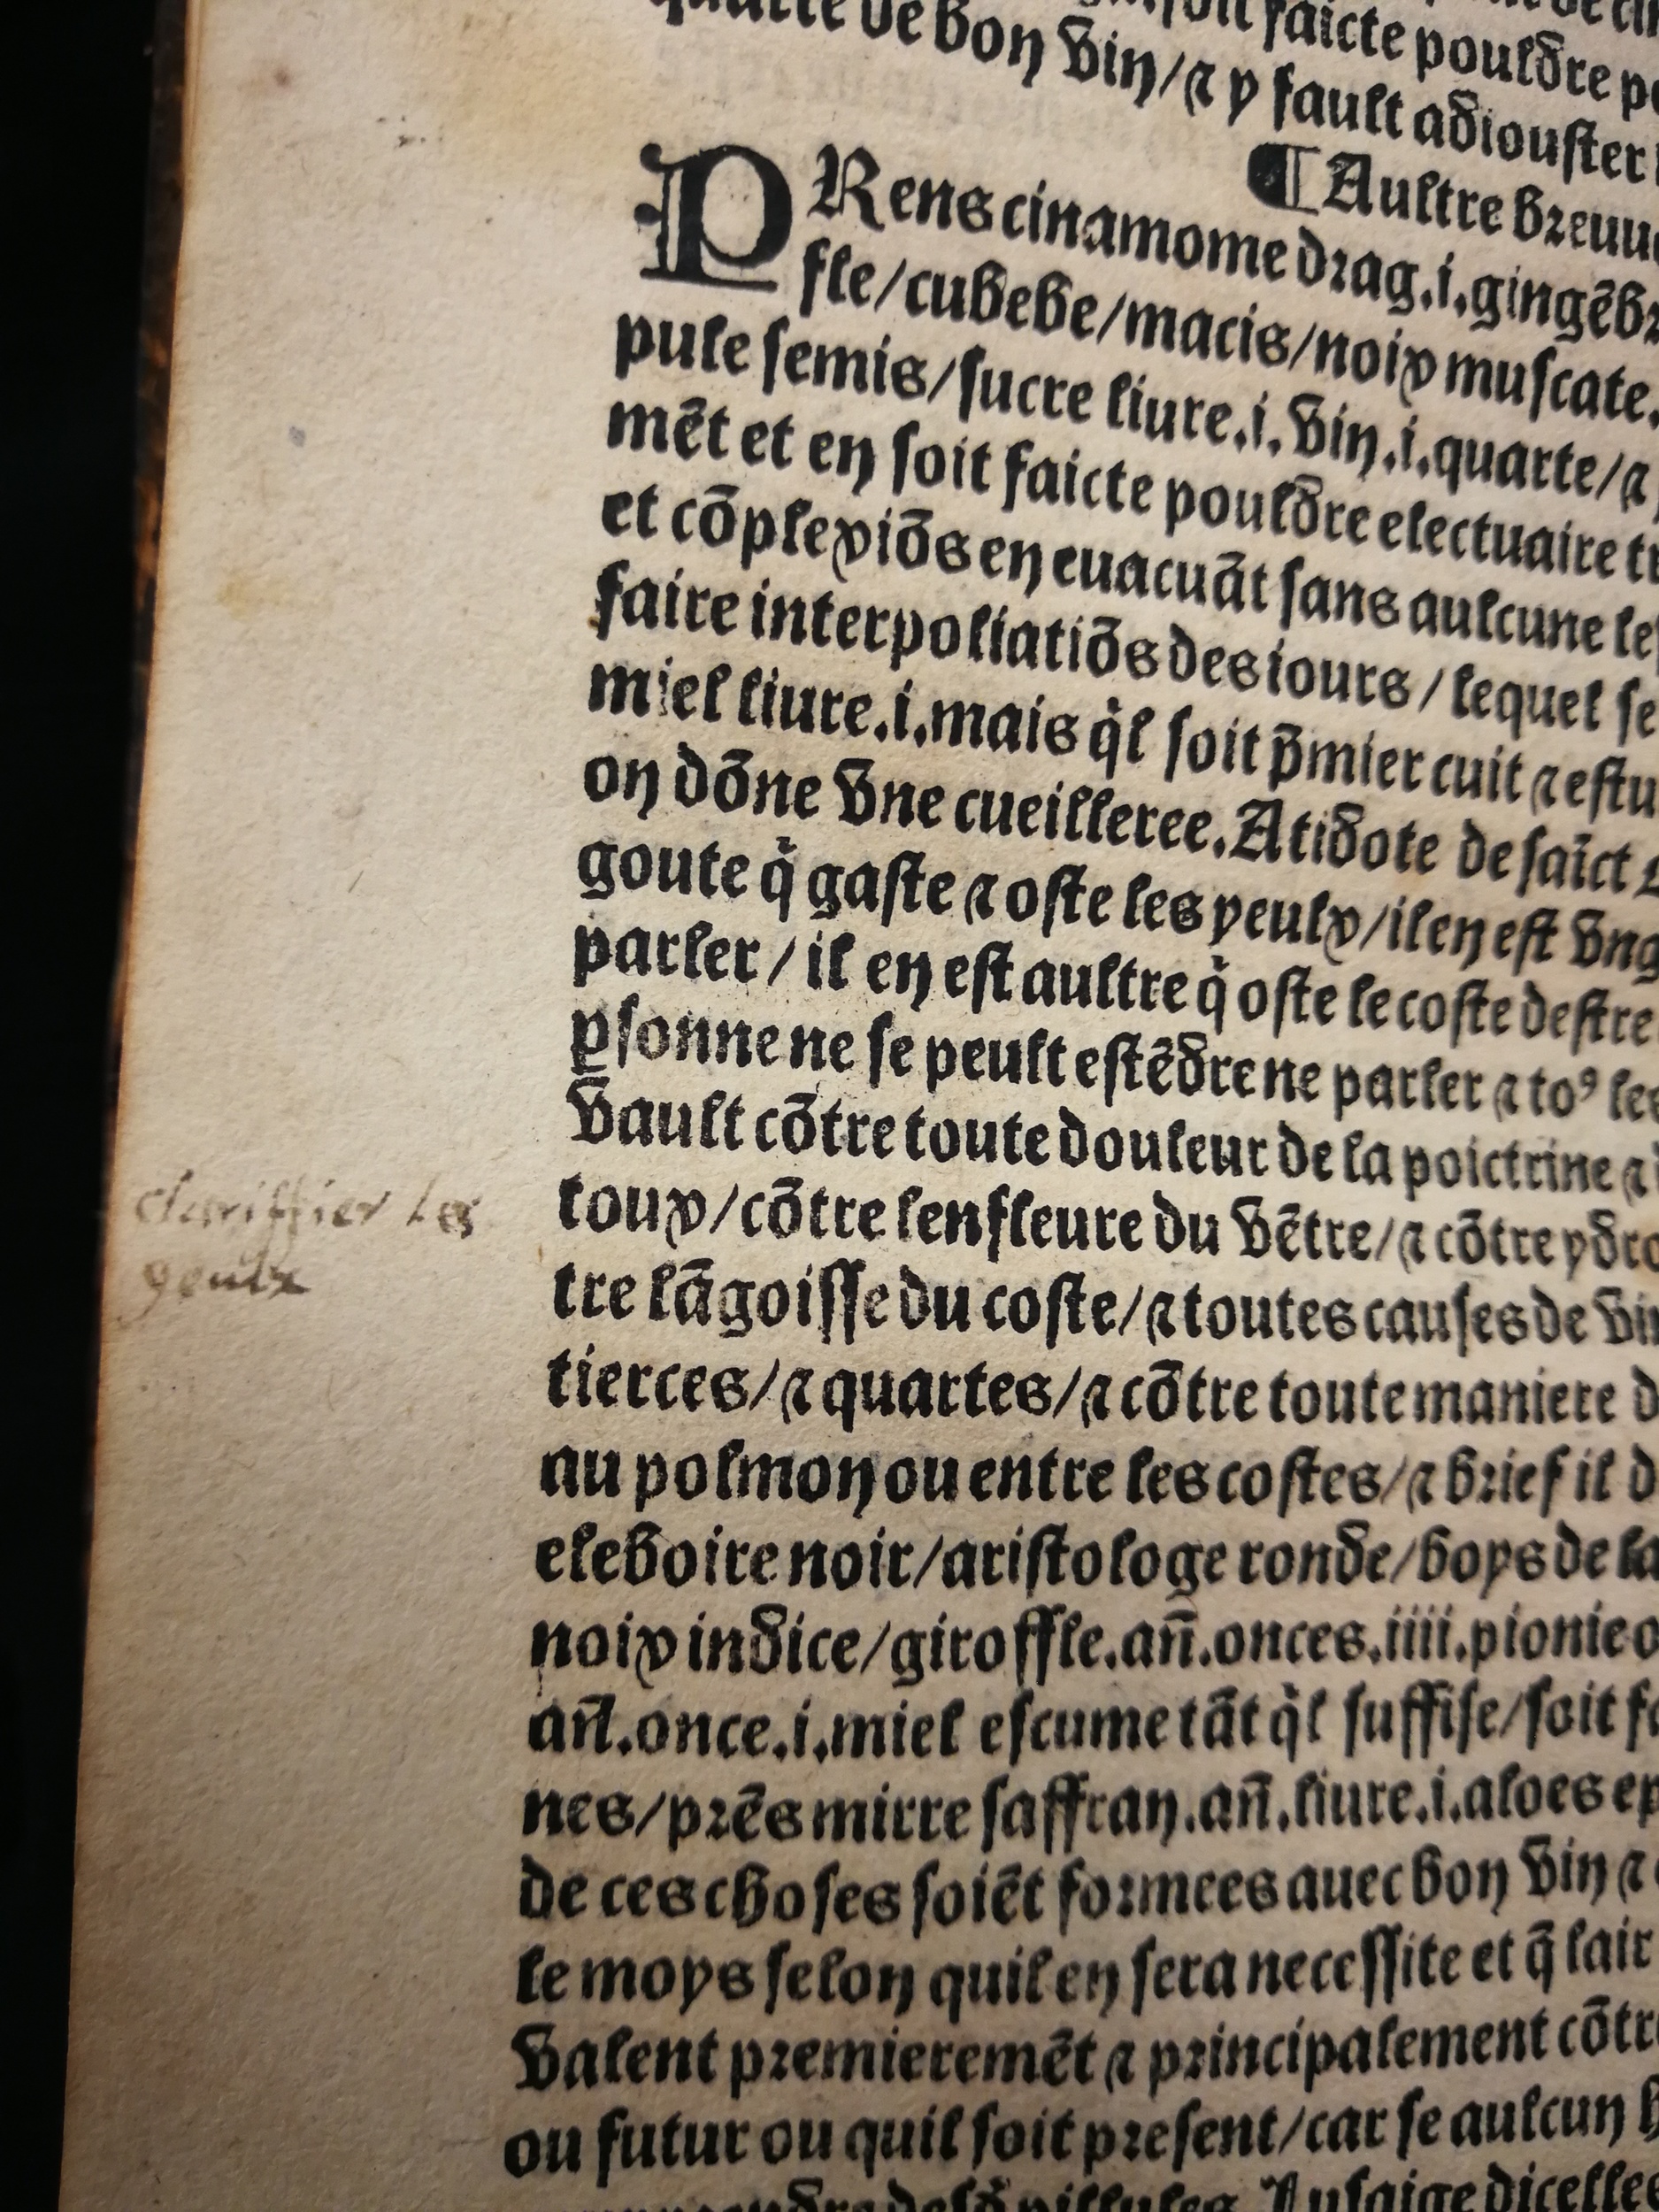 quarte de bon vin/⁊ y fault adiouster
soit faicte pouldre
¶Aultre breuu
PRens cinamome drag.i.gingẽbr
fle/cubebe/macis/noix muscate.
pule semis/sucre liure.i. vin.i.quarte/⁊
mẽt et en soit faicte pouldre electuaire
et cõplexiõs en euacuãt sans aulcune
faire interpoliatiõs des iours/lequel se
miel liure.i.mais q̇l soit p̃mier cuit ⁊ estu
on dõne vne cueilleree.Atidote de saĩct
goute q̇ gaste ⁊ oste les yeulx/il en est vng
parler/il en est aultre q̇ oste le coste destre
ꝑsonne ne se peult estẽdre ne parler ⁊ toꝰ les
vault cõtre toute douleur de la poictrine ⁊
toux/cõtre lenfleure du vẽtre/⁊ cõtre ydro
clariffier les
yeulx
tre lãgoisse du coste/⁊ toutes causes de
tierces/⁊ quartes/⁊ cõtre toute maniere d
au polmon ou entre les costes/⁊ brief il d
eleboire noir/aristologe ronde/boys de la
noix indice/giroffle.añ.onces.iiii.pionie
añ.once.i.miel escume tãt q̇l suffise/soit
nes/prẽs mirre saffran.añ.liure.i.aloes ep
de ces choses soiẽt formees auec bon vin ⁊
le moys selon quil en sera necessite et q̃ lair
valent premieremẽt ⁊ principalement cõtre
ou futur ou quil soit present/car se aulcun
pillules. Lusaige dicelles